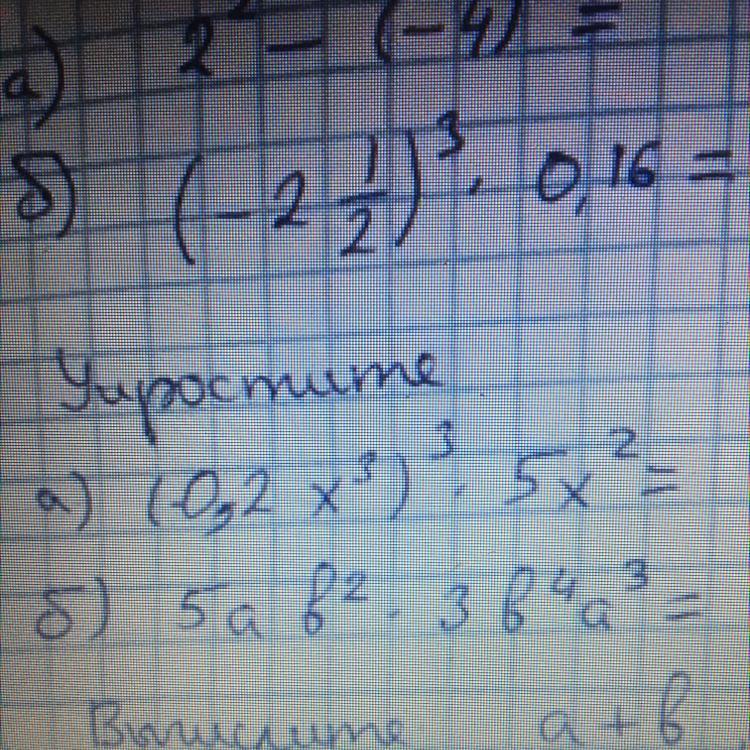 а) 2² - (-4) =
б) (-2 1/2)³ · 0,16 =
Упростите
а) (-0,2 x³)³ · 5x² =
б) 5a b² · 3 b⁴a³ =
Вычислите a + b